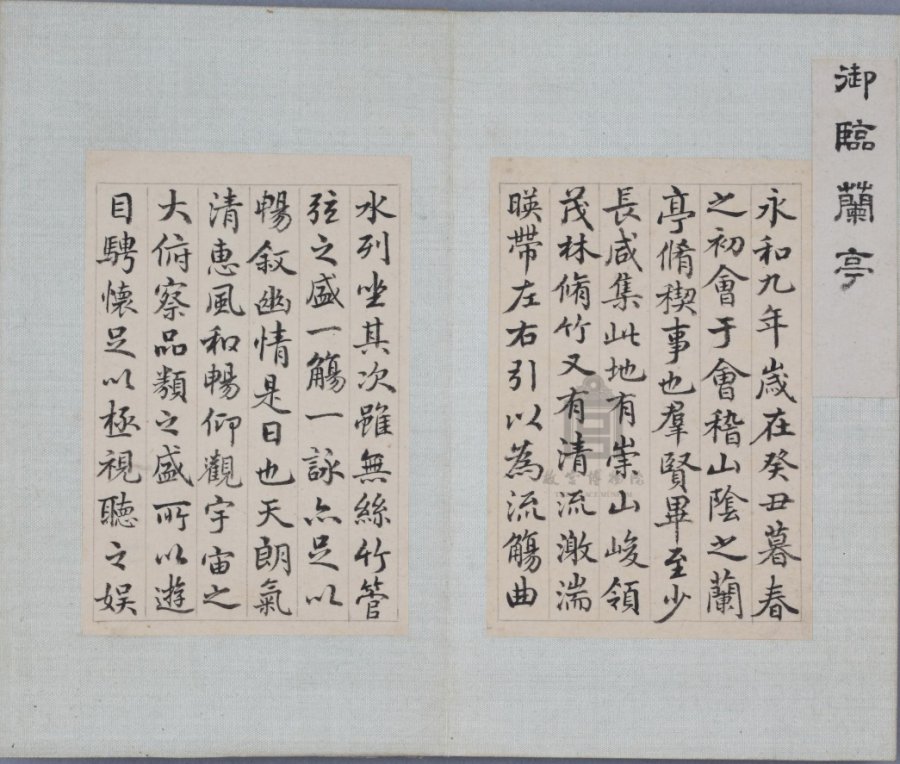 御臨蘭亭
永和九年歲在癸丑暮春
之初會于會稽山陰之蘭
亭脩稧事也羣賢畢至少
長咸集此地有崇山峻領
茂林脩竹又有清流激湍
暎帶左右引以為流觴曲
水列坐其次雖無絲竹管
弦之盛一觴一詠亦足以
暢叙幽情是日也天朗氣
清惠風和暢仰觀宇宙之
大俯察品類之盛所以遊
目騁懷足以極視聽之娛
故宮博物院